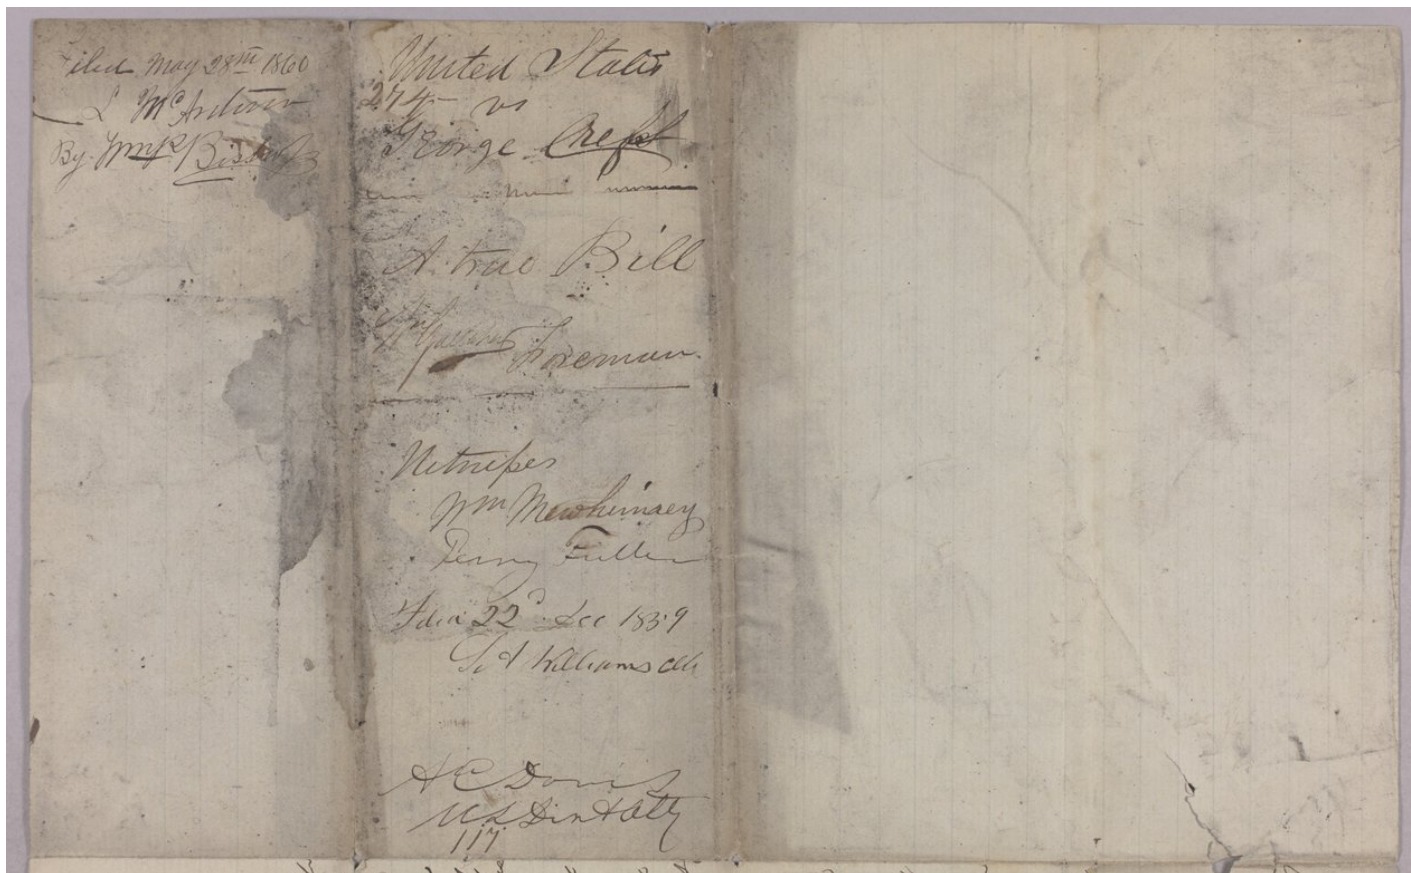 Filed May 28th 1860
L McArthur
By
United States
274 vs
George
A true Bill
Foreman
Witnesses
Wm Mewhinney
Perry Fuller
Filed 22d Dec 1859
Williams clk
A C Davis
U S Dist Atty
117